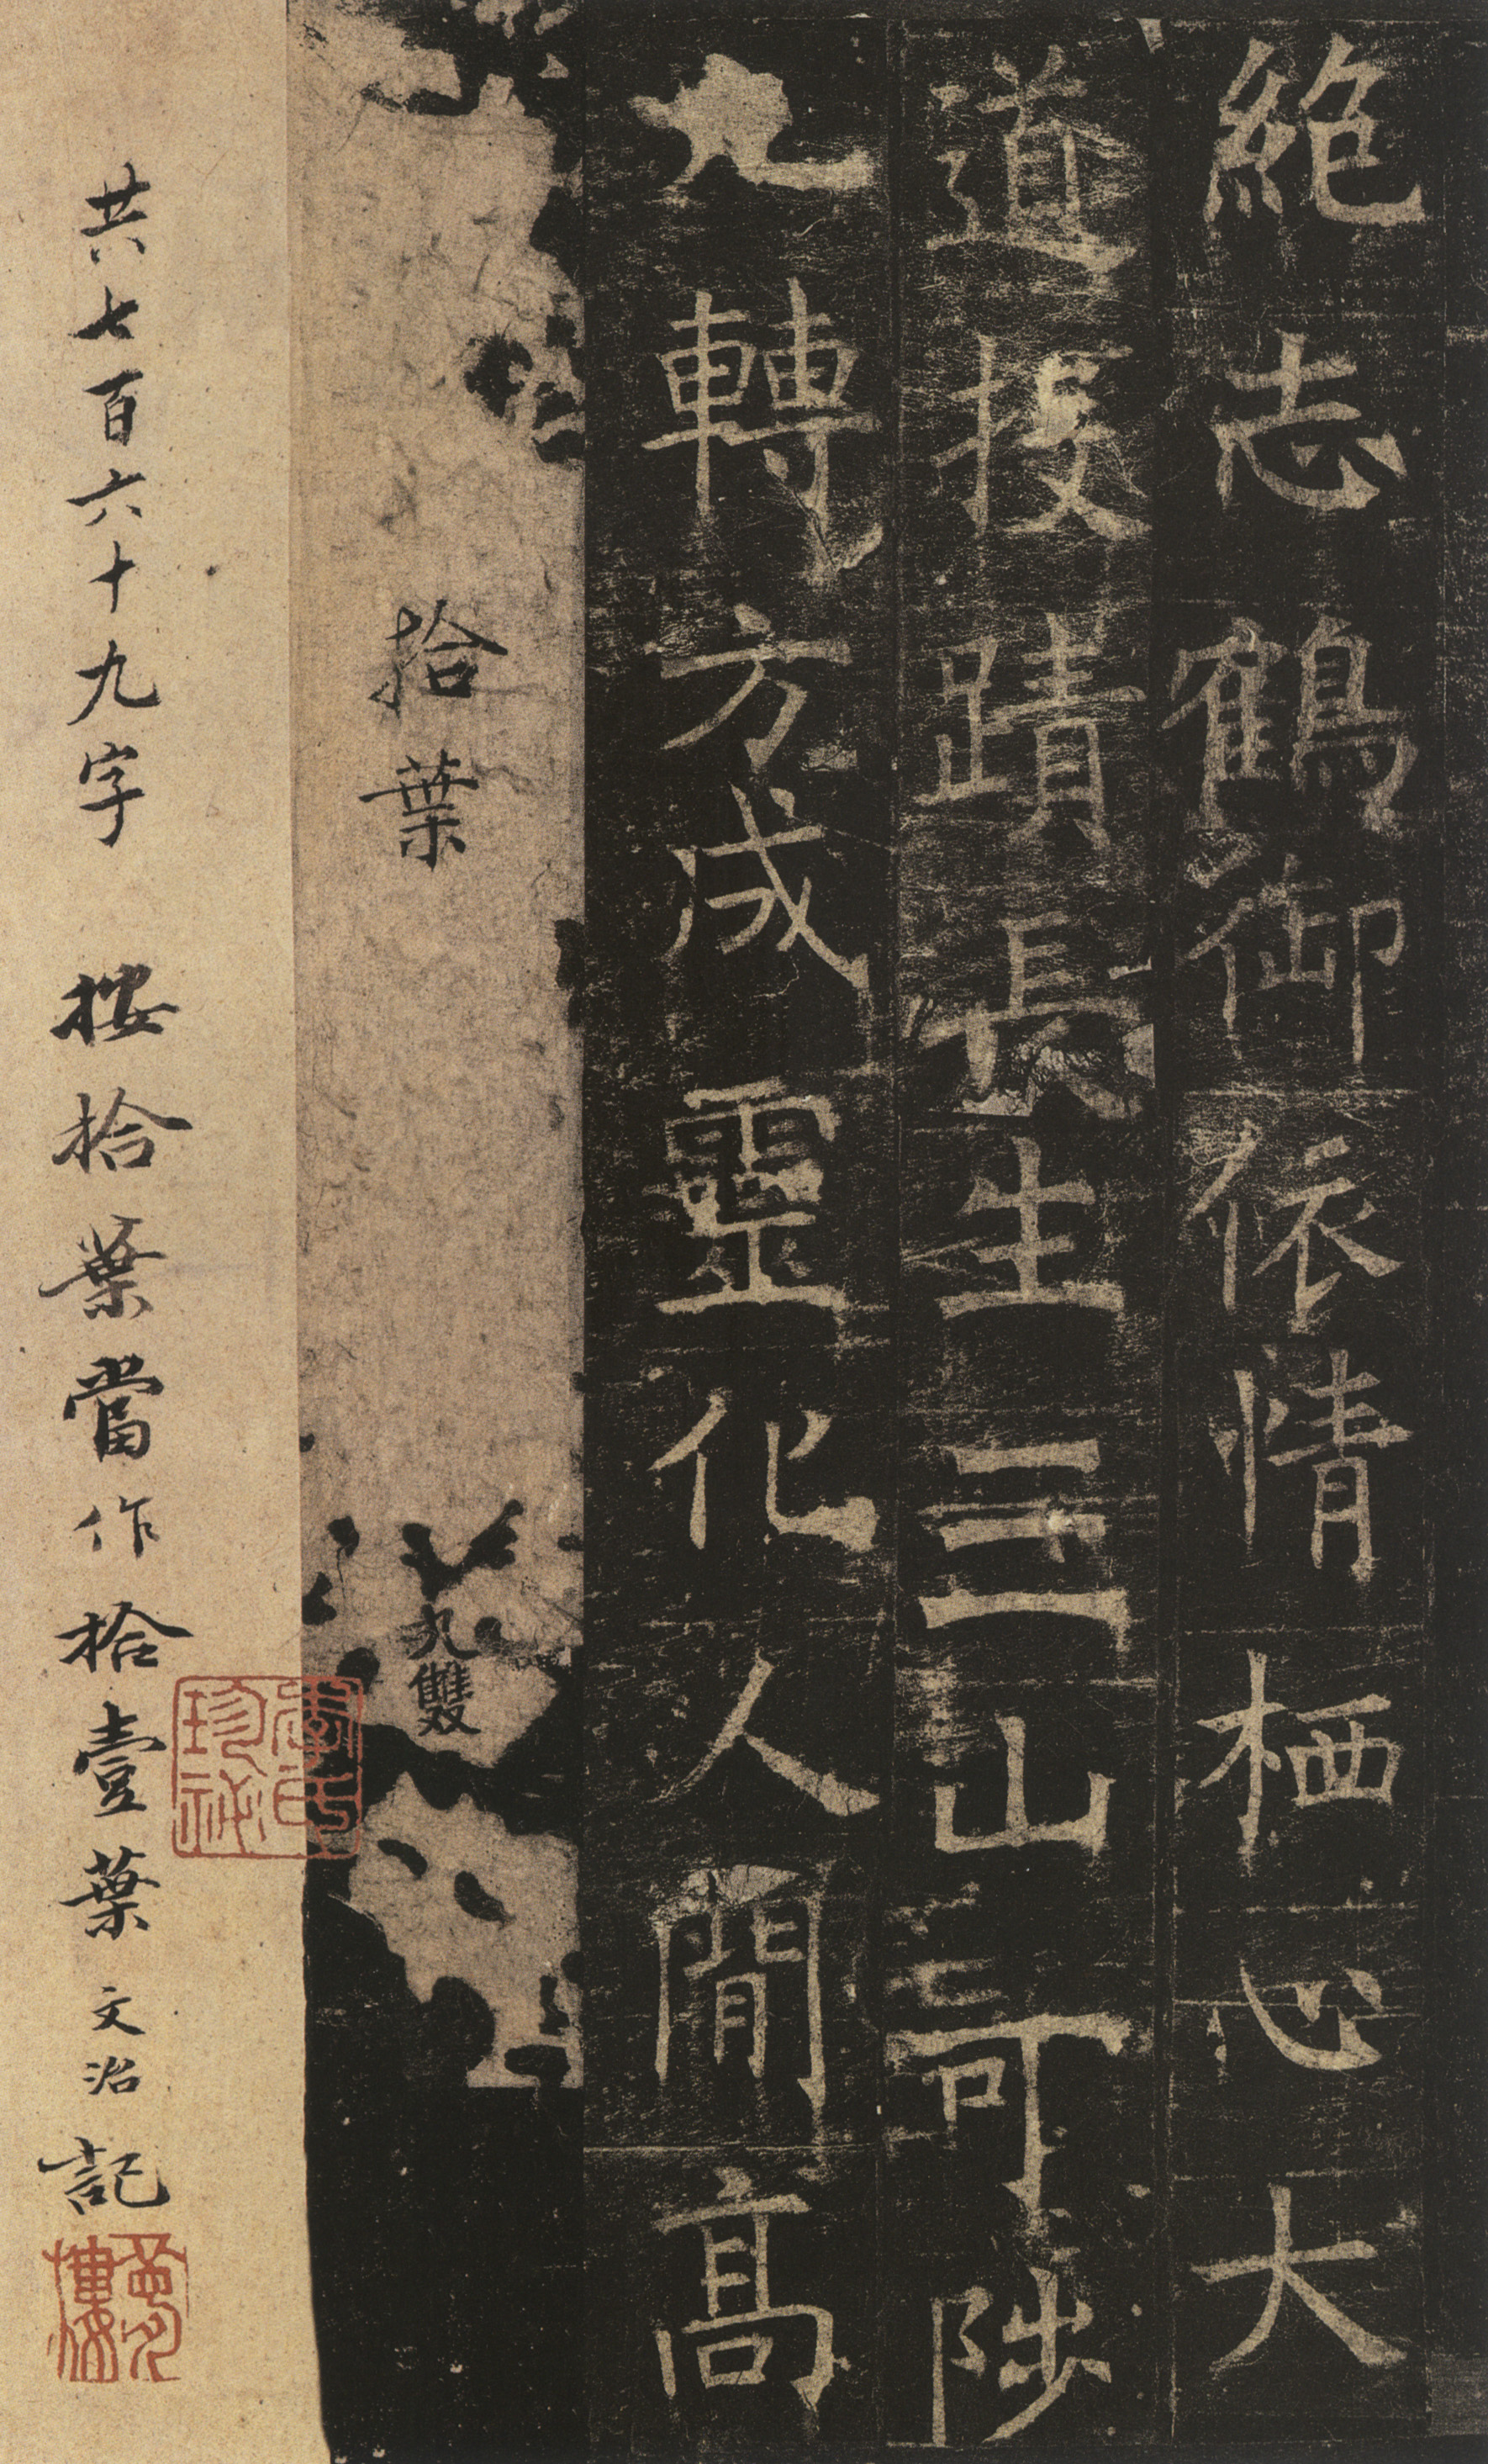 絶志鶴御依情栖心大
道投蹟長生三山可陟
九轉方成靈化人間高
拾葉
九雙
共七百六十九字 按拾葉當作拾壹葉 文治記
李氏珍祕
夢樓